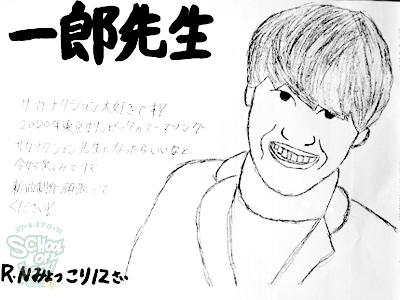 一郎先生
サカナクション大好きです!!
2020年東京オリンピックのテーマソング
サカナクション先生になったらいいなと
今から楽しみですず
新曲制作頑張って
ください!
スクールオブロック!
SCHOOL OF LOCK!
R.Nみょっこり12さい